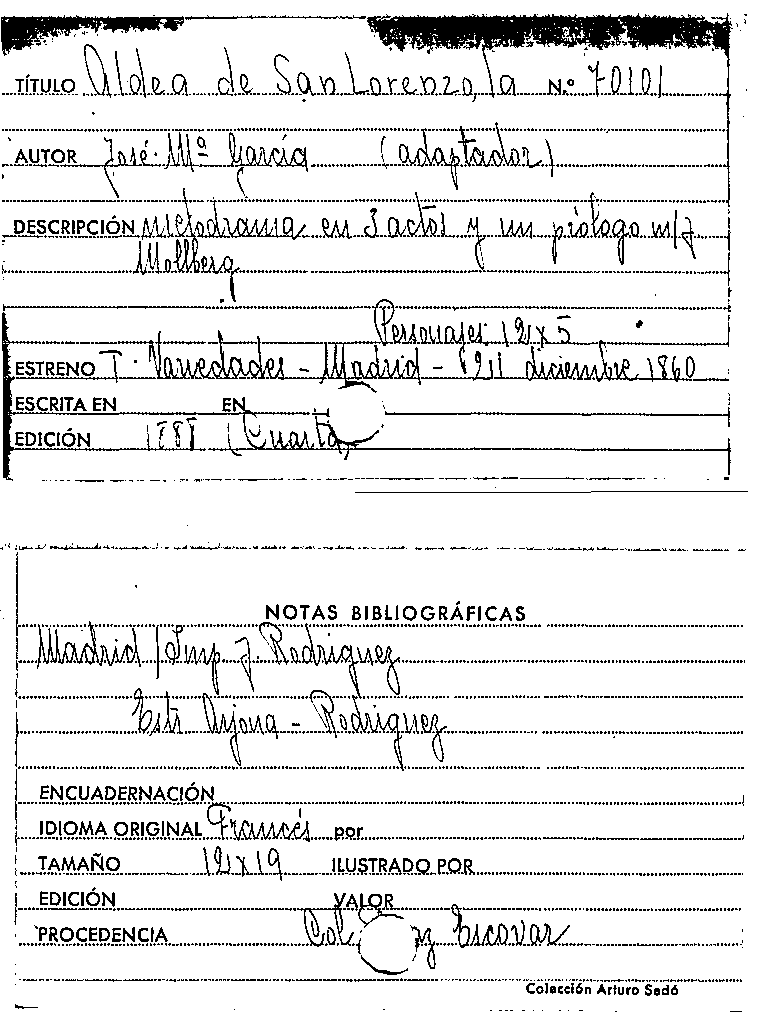 TÍTULO Aldea de San Lorenzo, la N.º 70101
AUTOR José Mª García (adaptador)
DESCRIPCIÓN melodrama en 3 actos y un prólogo m/J
Mollberg
Personajes 12 x 5
ESTRENO T. Variedades - Madrid - diciembre 1860
ESCRITA EN EN
EDICIÓN (Cuarta)
NOTAS BIBLIOGRÁFICAS
Madrid / Imp J. Rodriguez
Estr Arjona - Rodriguez
ENCUADERNACIÓN
IDIOMA ORIGINAL Francés por
TAMAÑO 12 x 19 ILUSTRADO POR
EDICIÓN VALOR
PROCEDENCIA Col Escovar
Colección Arturo Sedó